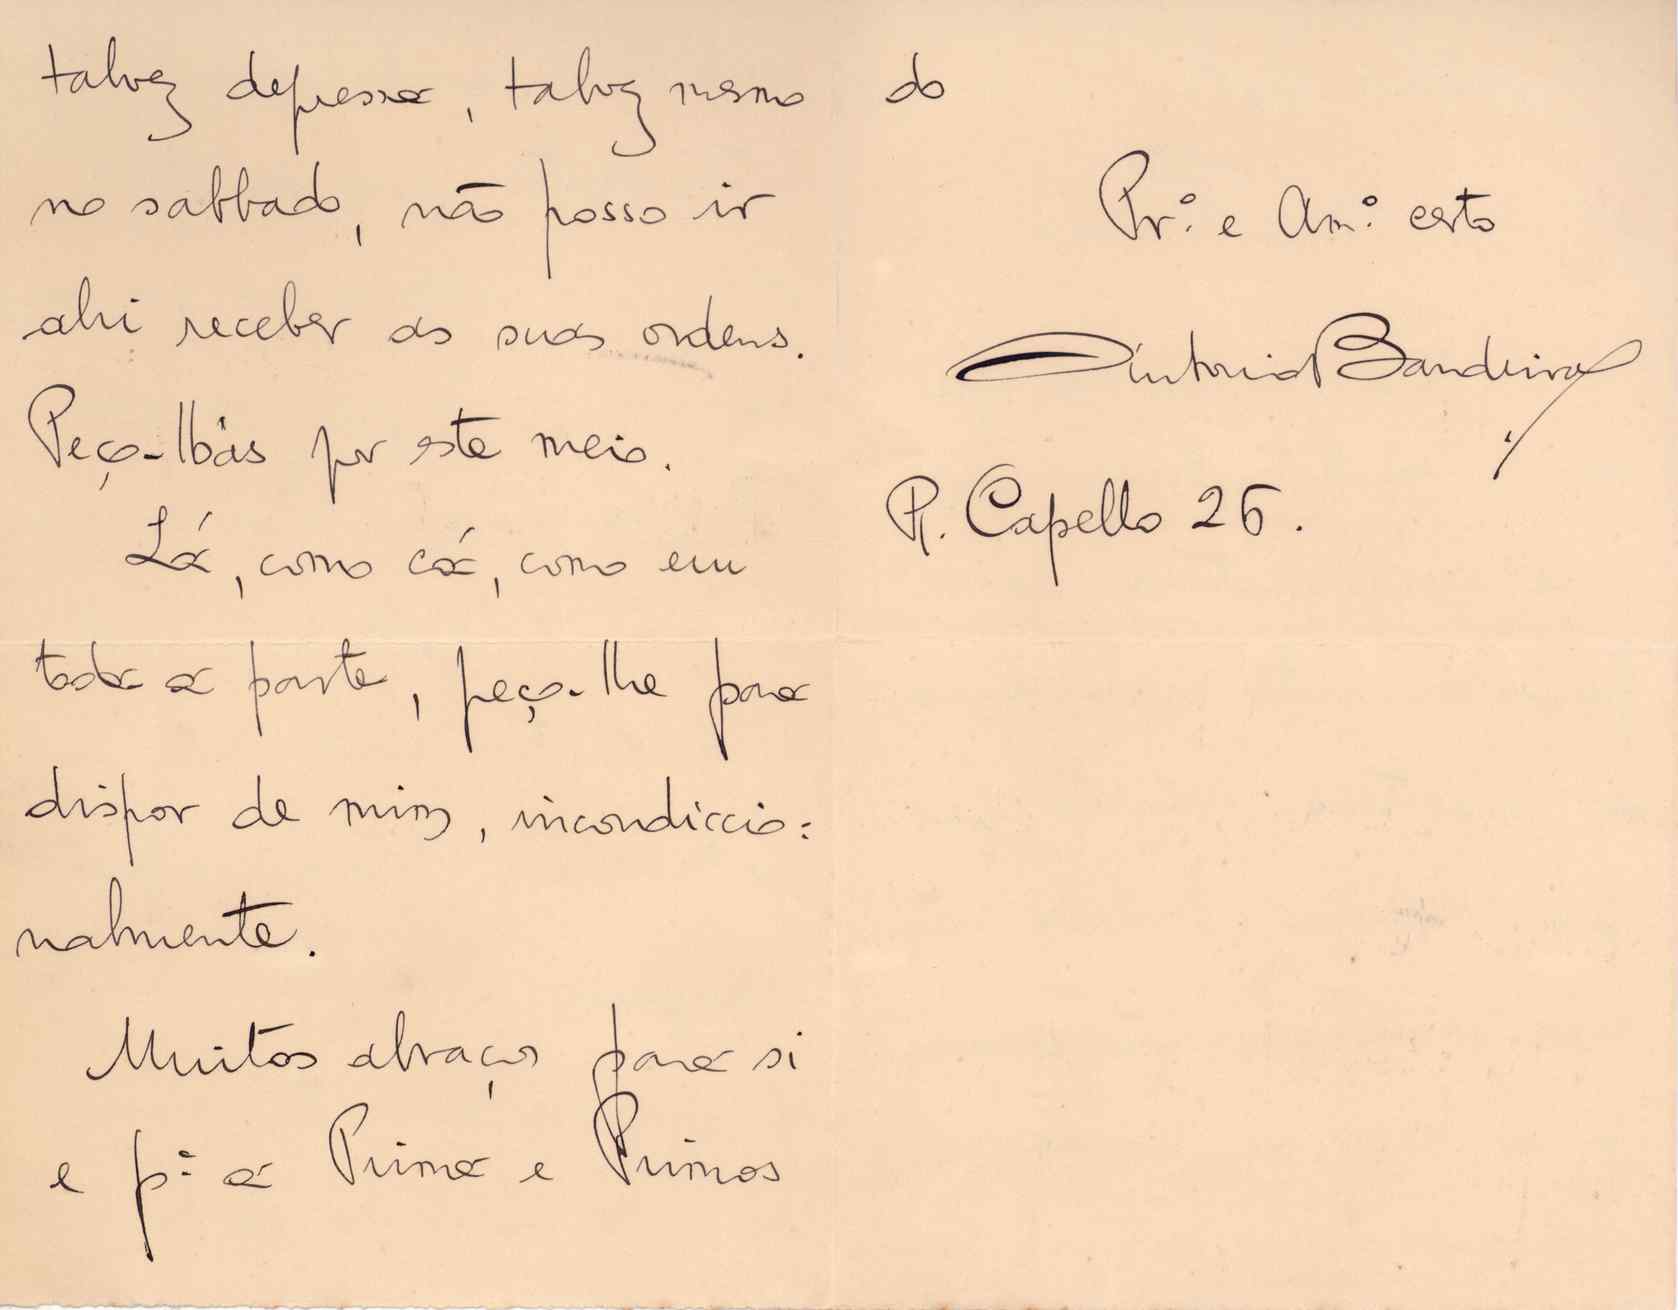 talvez depressa, talvez mesmo
no sabbado, não posso ir
ahi receber as suas ordens.
Peço-lh'as por este meio.
Lá, como cá, como em
toda a parte, peço-lhe para
dispor de mim, incondiccio=
nalmente.
Muitos abraços para si
e p.ª a Prima e Primos
do
Pr.º e Am.º certo
Antonio Bandeira
R. Capello 26.